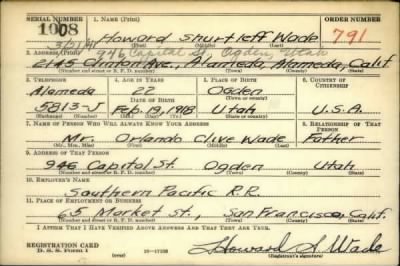 SERIAL NUMBER 1. NAME (Print) ORDER NUMBER
1008 Howard Shurtleff Wade 791
(First) (Middle) (Last)
3/21/41 946 Capitol St, Ogden, Utah
2. ADDRESS (Print)
2145 Clinton Ave., Alameda, Alameda, Calif.
(Number and street or R. F. D. number) (Town) (County) (State)
3. TELEPHONE 4. AGE IN YEARS 5. PLACE OF BIRTH 6. COUNTRY OF CITIZENSHIP
Alameda 22 Ogden
(Exchange) DATE OF BIRTH (Town or county)
5813-J Feb. 19, 1918 Utah U.S.A.
(Number) (Mo.) (Day) (Yr.) (State or country)
7. NAME OF PERSON WHO WILL ALWAYS KNOW YOUR ADDRESS 8. RELATIONSHIP OF THAT PERSON
Mr. Orlando Clive Wade Father
(Mr., Mrs., Miss) (First) (Middle) (Last)
9. ADDRESS OF THAT PERSON
946 Capitol St. Ogden Utah
(Number and street or R. F. D. number) (Town) (County) (State)
10. EMPLOYER'S NAME
Southern Pacific R.R.
11. PLACE OF EMPLOYMENT OR BUSINESS
65 Market St., San Francisco, Calif.
(Number and street or R. F. D. number) (Town) (County) (State)
I AFFIRM THAT I HAVE VERIFIED ABOVE ANSWERS AND THAT THEY ARE TRUE.
REGISTRATION CARD
D. S. S. Form 1 16-17105 Howard S. Wade
(Registrant's signature)